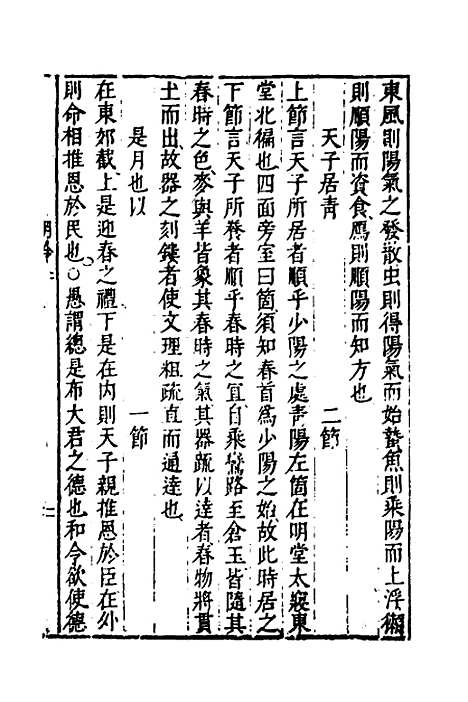 東風則陽氣之發散虫則得陽氣而始蟄魚則乘陽而上浮獺
則順陽而資食鴈則順陽而知方也
天子居青　二節
上節言天子所居者順乎少陽之處青陽左箇在明堂太寢東
堂北偏也四面旁室曰箇須知春首爲少陽之始故此時居之
下節言天子所養者順乎春時之宜自乘鸞路至倉玉皆隨其
春時之色麥與羊皆象其春時之氣其器疏以達者春物將貫
土而出故器之刻鏤者使文理粗疏直而通達也
是月也以　一節
在東郊截上是迎春之禮下是在内則天子親推恩於臣在外
則命相推恩於民也○愚謂總是布大君之德也和令欲使德
月令